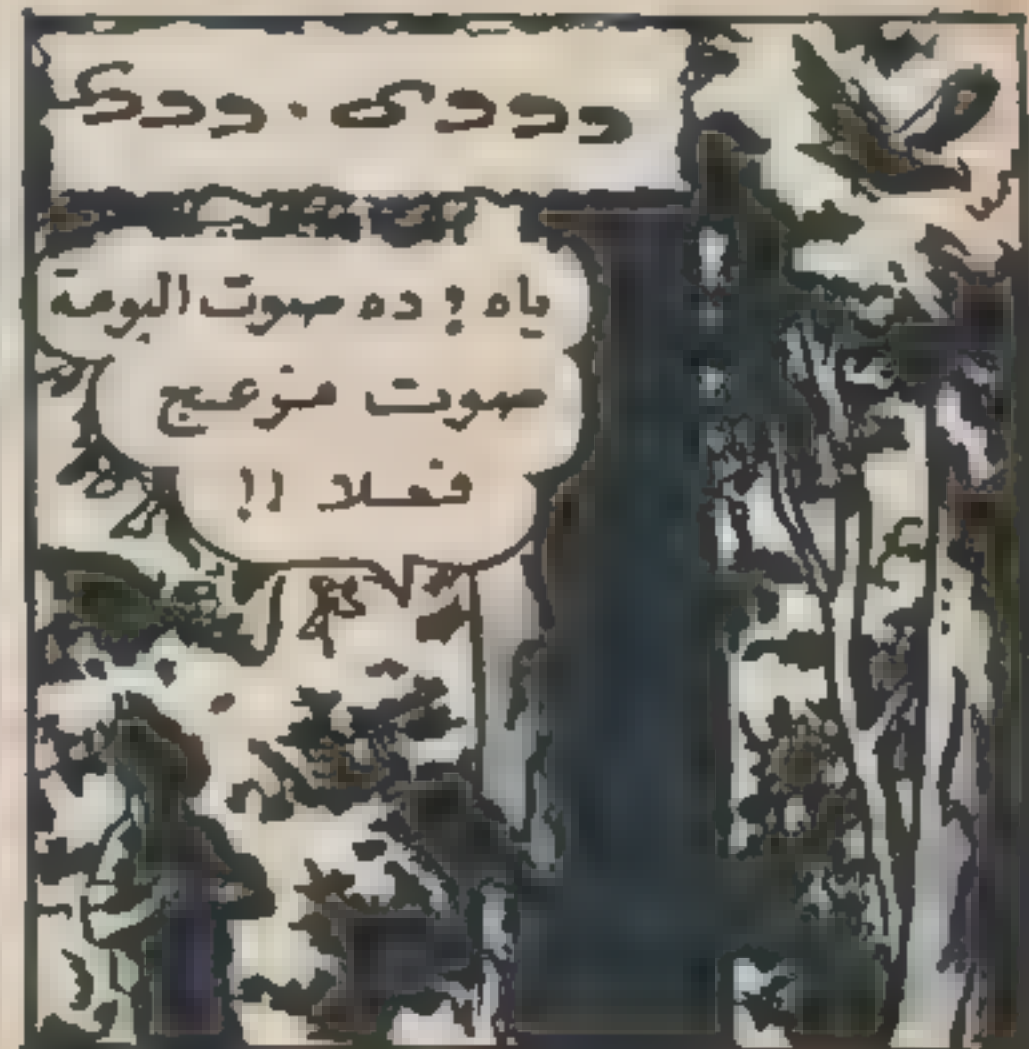 دددى . ددى
ياه ! ده صوت البومة
صوت مزعج
فعلا !!